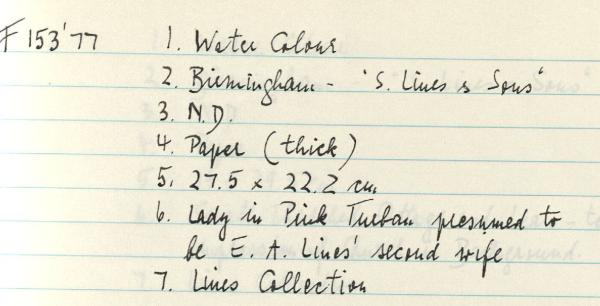 F 153'77 1. Water Colour
2. Birmingham - "S. Lines & Sons"
3. N.D.
4. Paper (thick)
5. 27.5 x 22.2 cm
6. Lady in Pink Turban presumed to
be E. A. Lines' second wife
7. Lines Collection